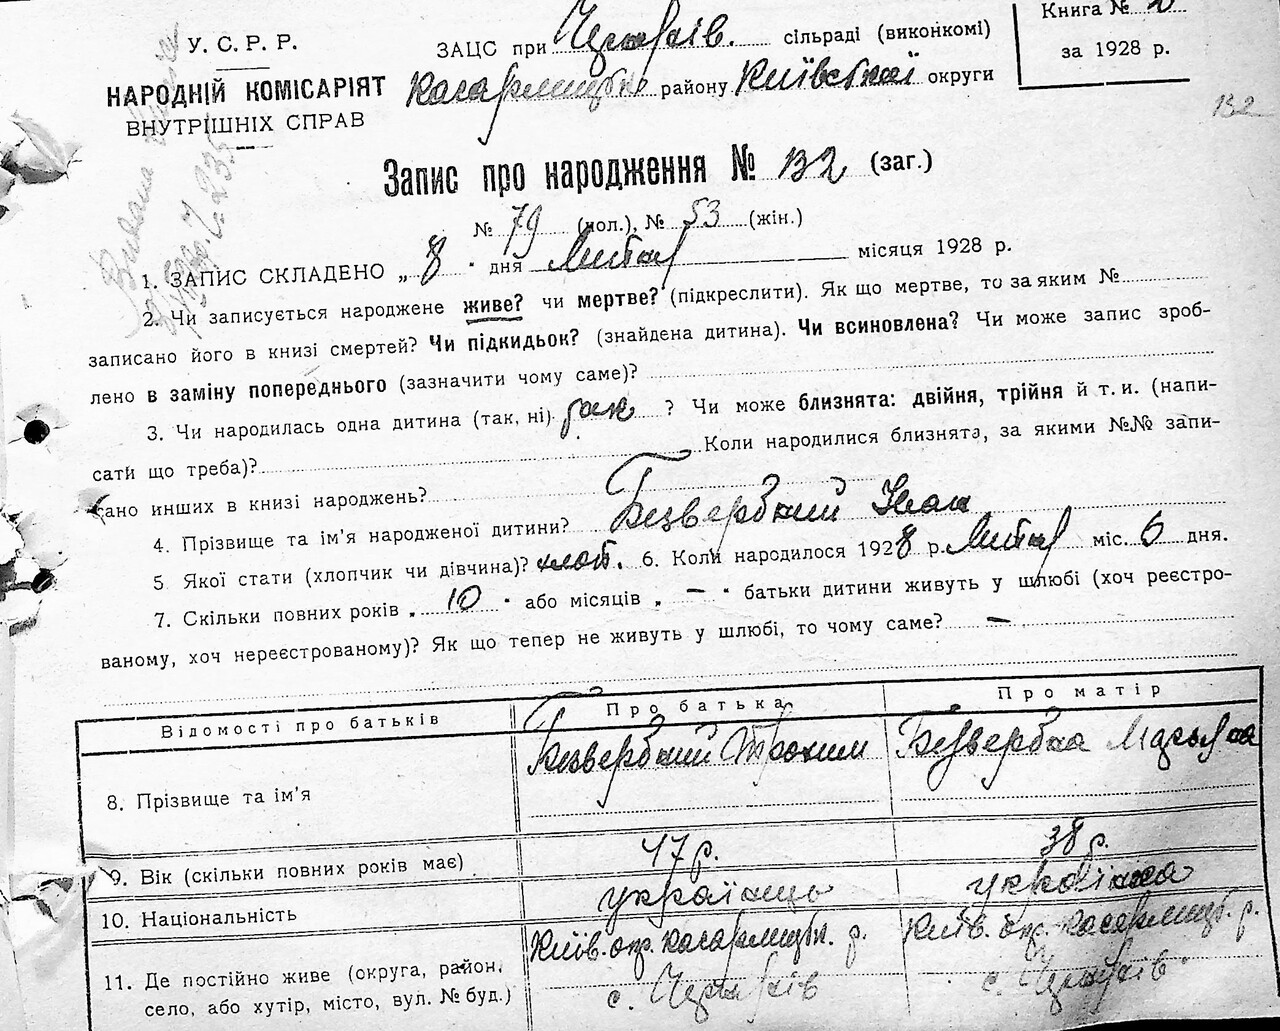 У. С. Р. Р.
НАРОДНІЙ КОМІСАРІЯТ
ВНУТРІШНІХ СПРАВ
ЗАЦС при сільраді (виконкомі)
району Київської округи
Книга №
за 1928 р.
132
Запис про народження № 132 (заг.)
№ 79 (чол.), № 53 (жін.)
1. ЗАПИС СКЛАДЕНО „ 8 " дня місяця 1928 р.
2. Чи записується народжене живе? чи мертве? (підкреслити). Як що мертве, то за яким №
записано його в книзі смертей? Чи підкидьок? (знайдена дитина). Чи всиновлена? Чи може запис зроб-
лено в заміну попереднього (зазначити чому саме)?
3. Чи народилась одна дитина (так, ні) так ? Чи може близнята: двійня, трійня й т. и. (напи-
сати що треба)? Коли народилися близнята, за якими №№ запи-
сано инших в книзі народжень?
4. Прізвище та ім'я народженої дитини? Безвербний Іван
5 Якої стати (хлопчик чи дівчина)? хлоп. 6. Коли народилося 1928 р. міс. 6 дня.
7. Скільки повних років „ 10 " або місяців „ — " батьки дитини живуть у шлюбі (хоч реєстро-
ваному, хоч нереєстрованому)? Як що тепер не живуть у шлюбі, то чому саме? —
Відомості про батьків Про батька Про матір
8. Прізвище та ім'я Безвербний Трохим Безвербна
9. Вік (скільки повних років має) 47 р. 38 р.
10. Національність українець українка
11. Де постійно живе (округа, район, Київ. окр. р. Київ. окр. р.
село, або хутір, місто, вул. № буд.) с. с.